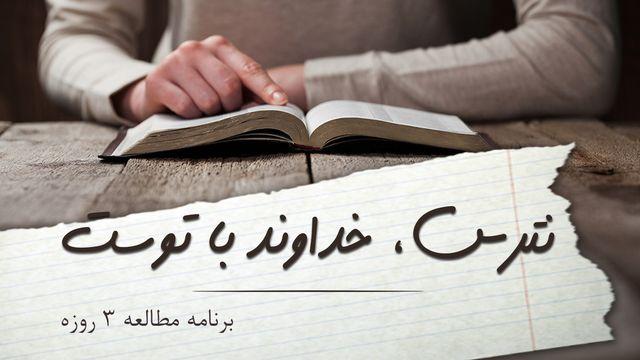 نترس، خداوند با توست
برنامه مطالعه ۳ روزه